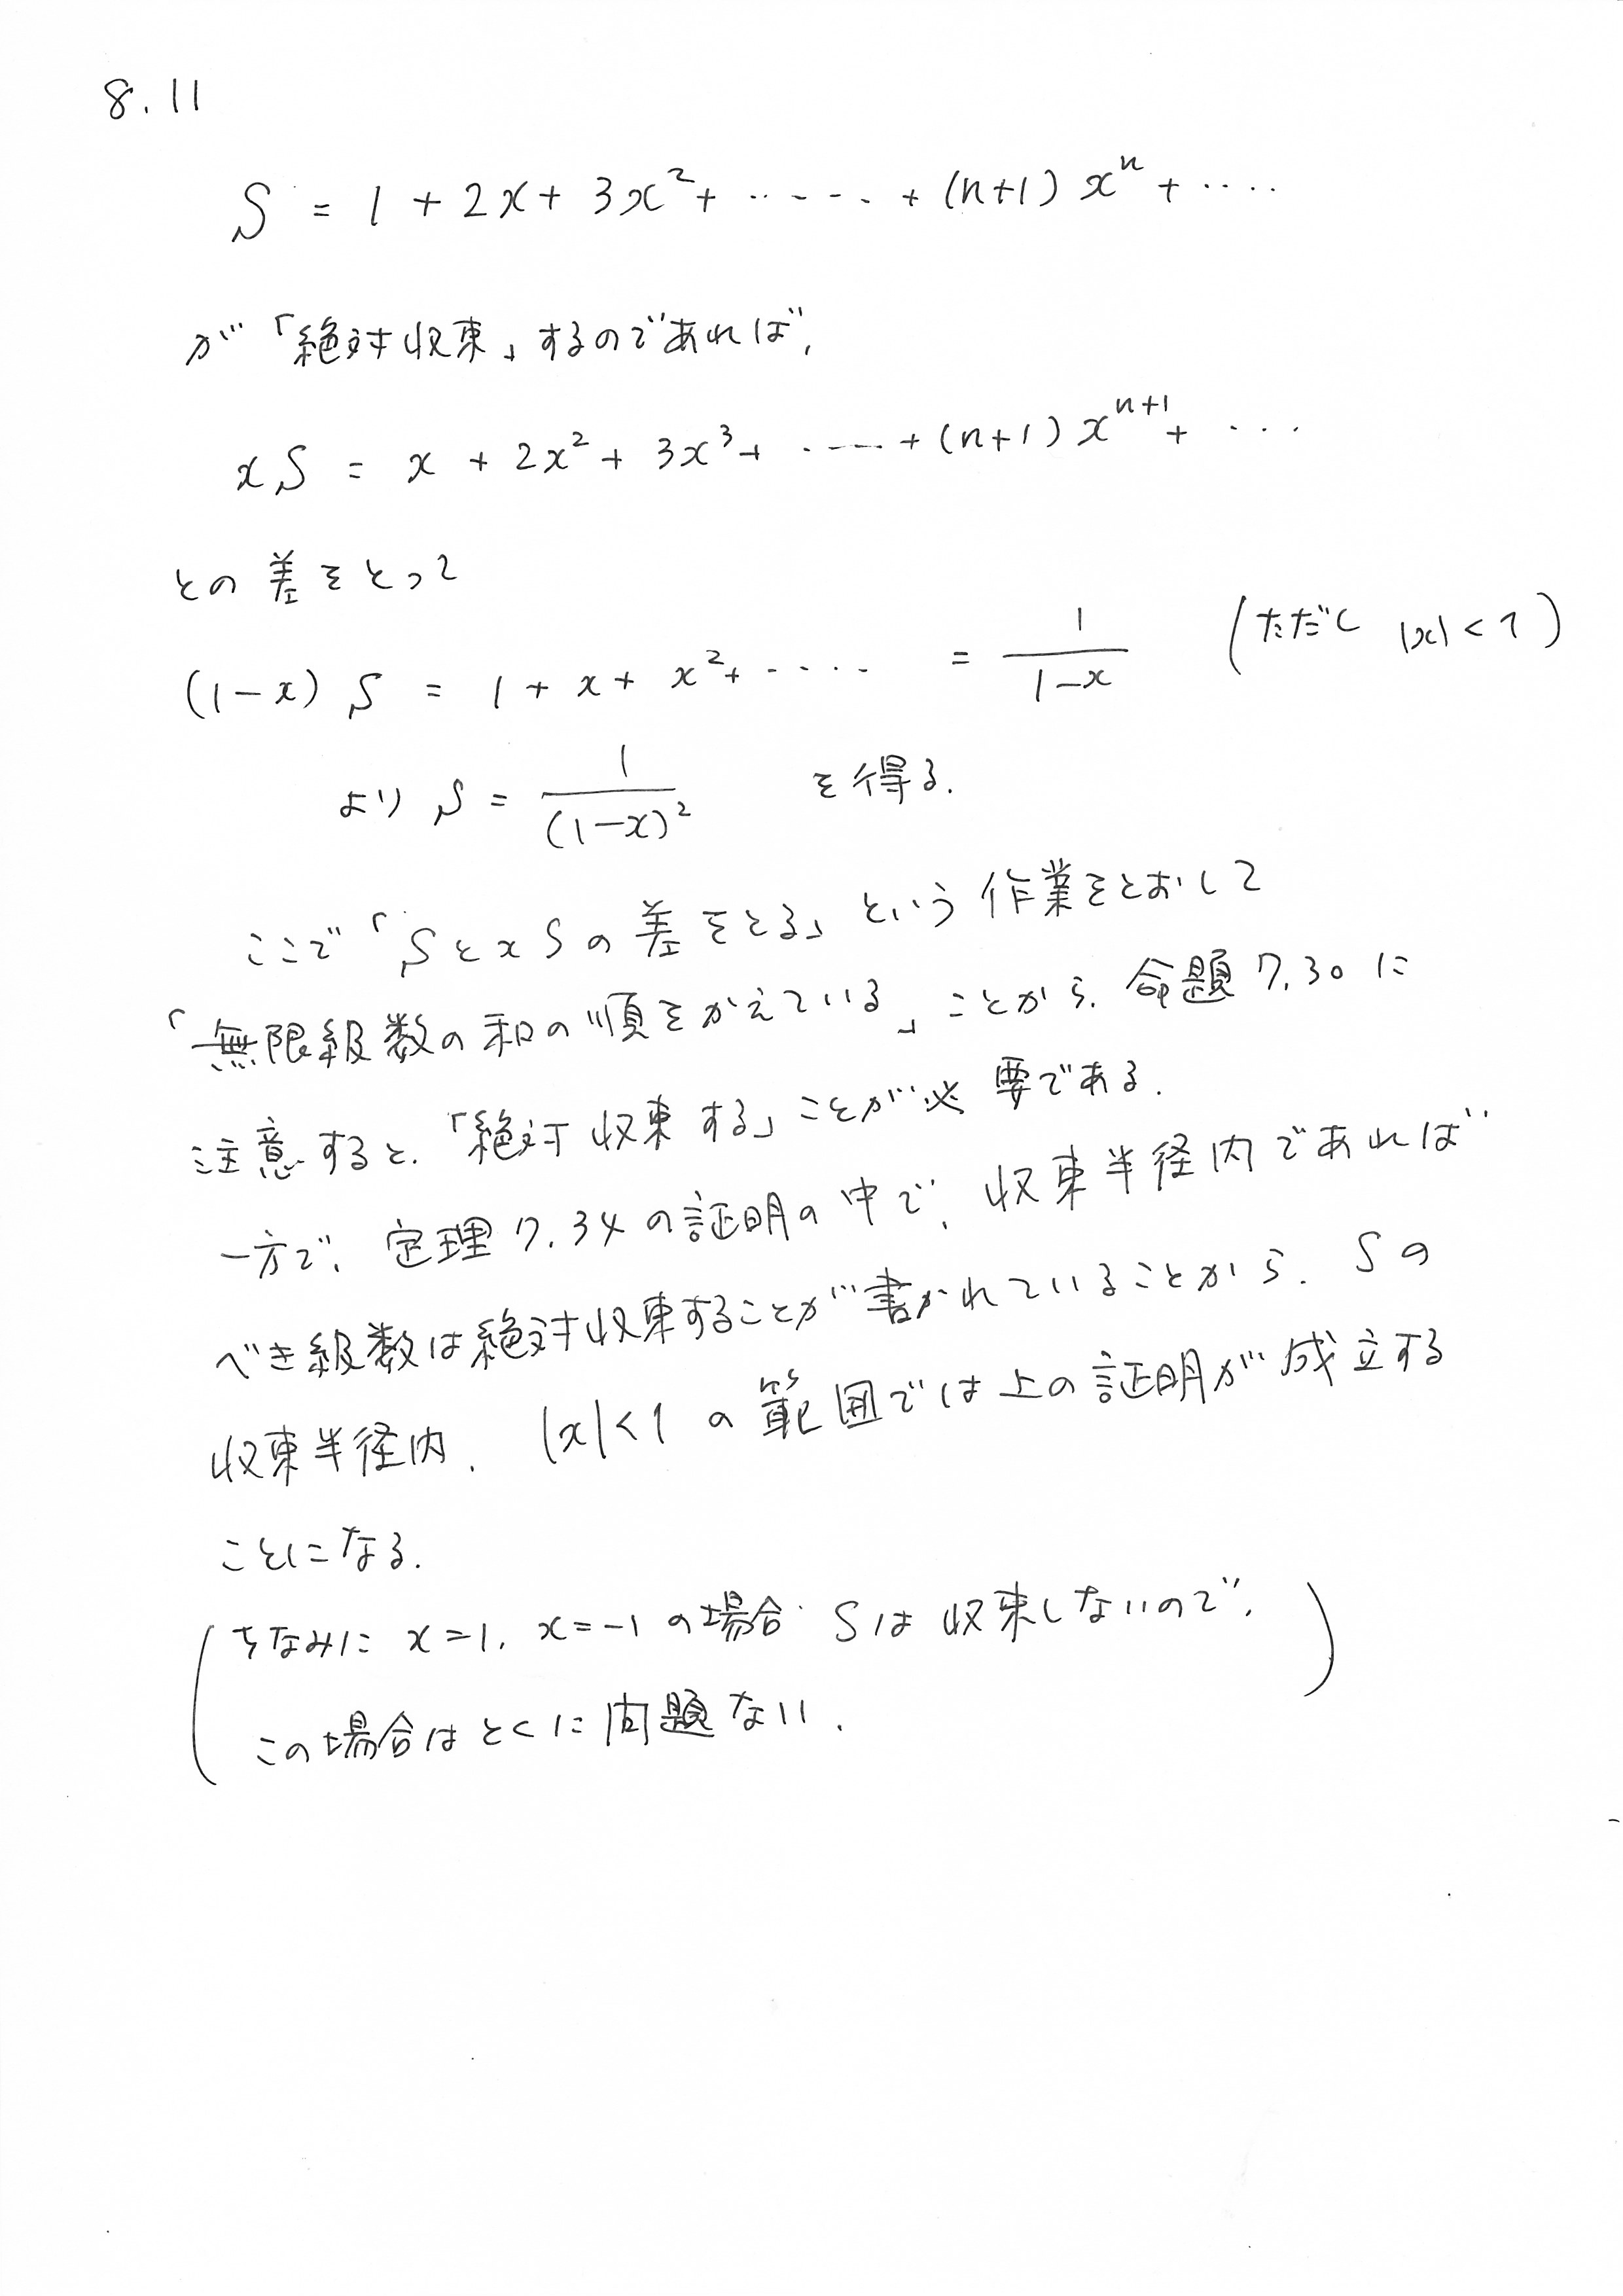 8.11
S = 1 + 2x + 3x² + ‥‥‥ + (n+1) xⁿ + ‥‥
が「絶対収束」するのであれば,
xS = x + 2x² + 3x³ + ‥‥ + (n+1) xⁿ⁺¹ + ‥‥
との差をとって
(1-x) S = 1 + x + x² + ‥‥ = 1/(1-x) (ただし |x| < 1)
より S = 1/(1-x)² を得る.
ここで「SとxSの差をとる」という作業をとおして
「無限級数の和の順をかえている」ことから. 命題7.30に
注意すると.「絶対収束する」ことが必要である.
一方で, 定理7.34の証明の中で, 収束半径内であれば
べき級数は絶対収束することが書かれていることから. Sの
収束半径内. |x|<1 の範囲では上の証明が成立する
ことになる.
(ちなみに x=1, x=-1 の場合 Sは収束しないので,
この場合はとくに問題ない.)